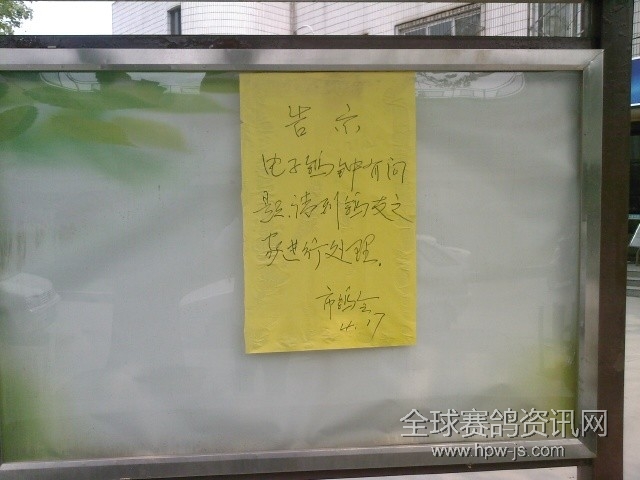 告示
电子鸽钟有问
题.请到鸽友之
家进行处理.
市鸽会
4.17
全球赛鸽资讯网
www.hpw-js.com